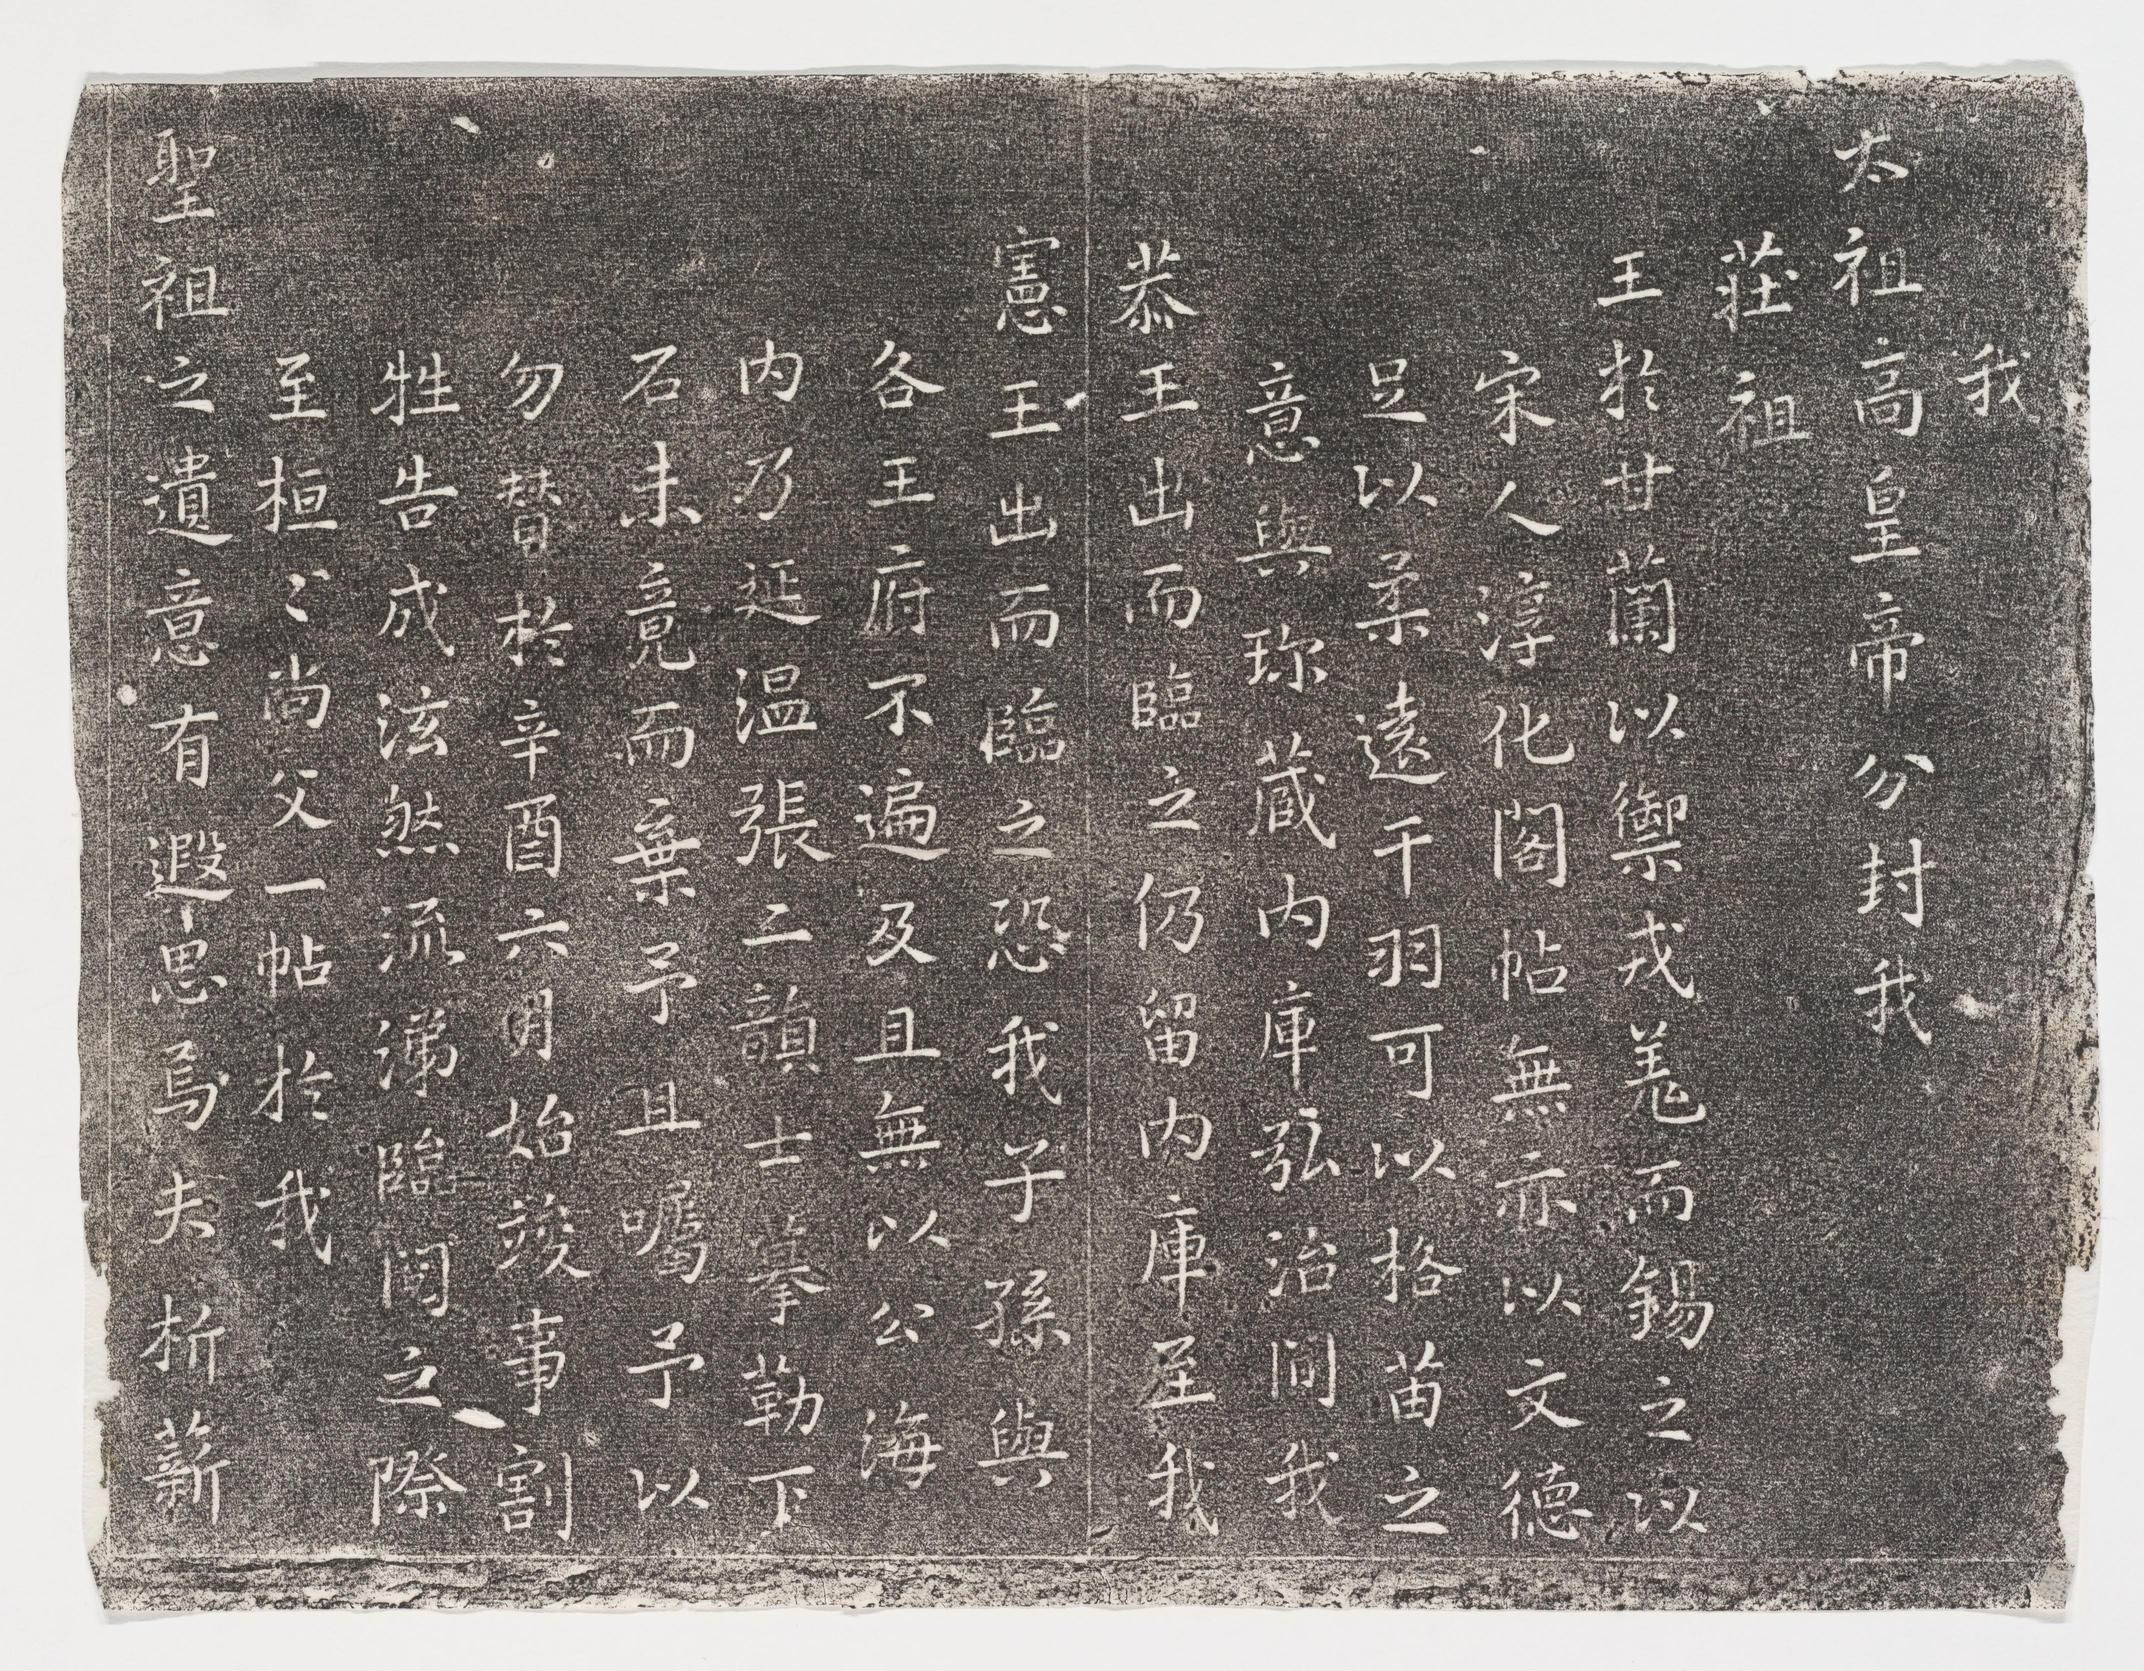 我
太祖高皇帝分封我
莊祖
王於甘蘭以禦戎羗而錫之以
宋人淳化閣帖無亦以文德
足以柔遠干羽可以格苗之
意與珎蔵内庫弘治間我
恭王出而臨之仍留内庫至我
憲王出而臨之恐我子孫與
各王府不遍及且無以公海
内乃延温張二韻士摹勒下
石未竟而棄予且囑予以
勿替於辛酉六月始竣事割
牲告成泫然流涕臨閲之際
至桓〻尚父一帖於我
聖祖之遺意有遐思焉夫析薪